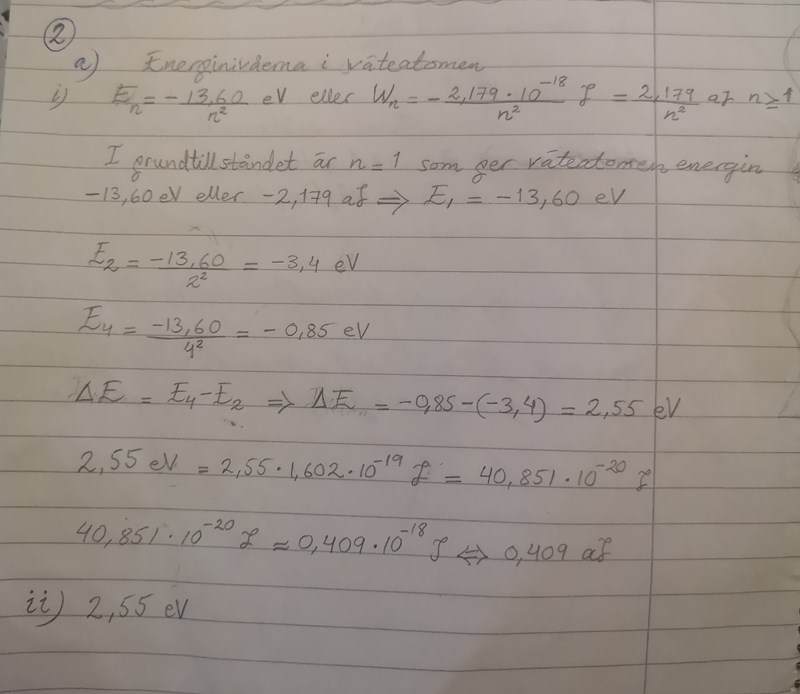 2
a) Energinivåerna i väteatomen
i) Eₙ = -13,60/n² eV eller Wₙ = -2,179·10⁻¹⁸/n² J = 2,179/n² aJ n≥1
I grundtillståndet är n=1 som ger väteatomen energin
-13,60 eV eller -2,179 aJ ⇒ E₁ = -13,60 eV
E₂ = -13,60/2² = -3,4 eV
E₄ = -13,60/4² = -0,85 eV
ΔE = E₄-E₂ ⇒ ΔE = -0,85-(-3,4) = 2,55 eV
2,55 eV = 2,55·1,602·10⁻¹⁹ J = 40,851·10⁻²⁰ J
40,851·10⁻²⁰ J ≈ 0,409·10⁻¹⁸ J ⇔ 0,409 aJ
ii) 2,55 eV